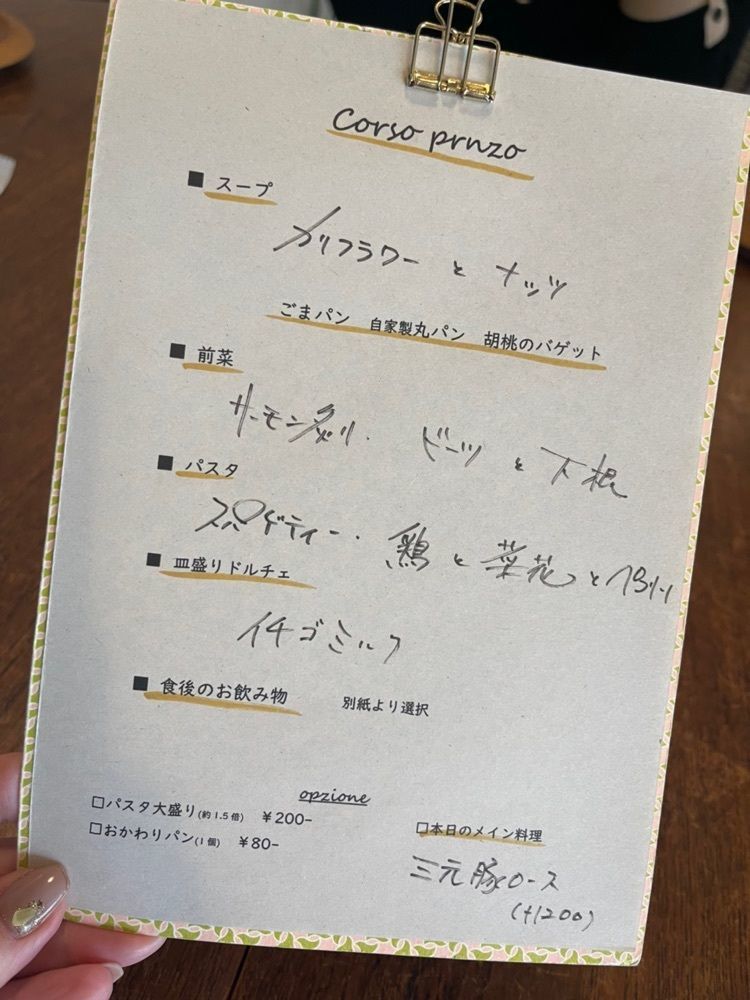 Corso prnzo
■ スープ
カリフラワー と ナッツ
ごまパン 自家製丸パン 胡桃のバゲット
■ 前菜
サーモン炙り. ビーツ と 大根
■ パスタ
スパゲティー. 鶏 と 菜花 と
■ 皿盛りドルチェ
イチゴミルク
■ 食後のお飲み物 別紙より選択
opzione
□パスタ大盛り(約1.5倍) ¥200-
□おかわりパン(1個) ¥80-
□本日のメイン料理
三元豚ロース
(+1200)